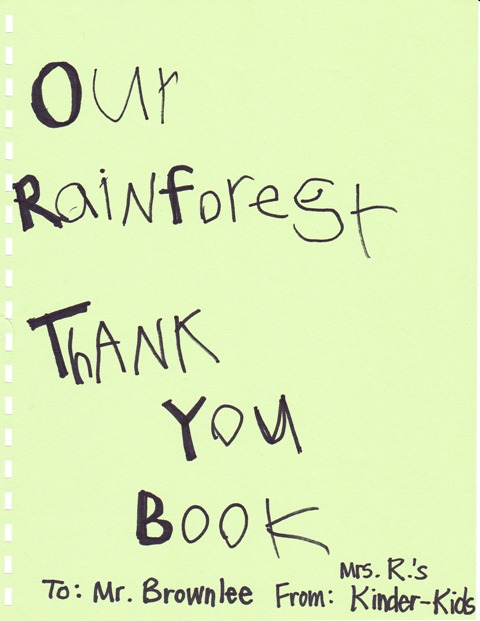 Our
Rainforest
ThANK
YOU
BOOK
Mrs. R.'s
To: Mr. Brownlee From: Kinder-Kids